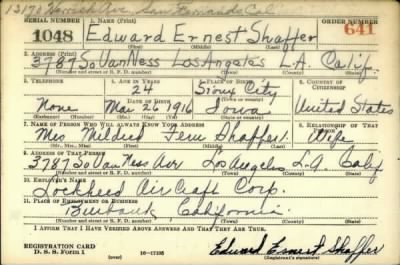 13170 Herrick Ave. San Fernando Cal.
SERIAL NUMBER 1. NAME (Print) ORDER NUMBER
1048 Edward Ernest Shaffer 641
(First) (Middle) (Last)
2. ADDRESS (Print)
3787 So Van Ness Los Angeles L.A. Calif.
(Number and street or R. F. D. number) (Town) (County) (State)
3. TELEPHONE 4. AGE IN YEARS 5. PLACE OF BIRTH 6. COUNTRY OF CITIZENSHIP
24 Sioux City
DATE OF BIRTH (Town or county)
None Mar 26 1916 Iowa United States
(Exchange) (Number) (Mo.) (Day) (Yr.) (State or country)
7. NAME OF PERSON WHO WILL ALWAYS KNOW YOUR ADDRESS 8. RELATIONSHIP OF THAT PERSON
Mrs Mildred Fern Shaffer. Wife
(Mr., Mrs., Miss) (First) (Middle) (Last)
9. ADDRESS OF THAT PERSON
3787 So Van Ness Ave Los Angeles L.A. Calif
(Number and street or R. F. D. number) (Town) (County) (State)
10. EMPLOYER'S NAME
Lockheed AirCraft Corp.
11. PLACE OF EMPLOYMENT OR BUSINESS
Burbank California
(Number and street or R. F. D. number) (Town) (County) (State)
I AFFIRM THAT I HAVE VERIFIED ABOVE ANSWERS AND THAT THEY ARE TRUE.
REGISTRATION CARD
D. S. S. Form 1 16-17105 Edward Ernest Shaffer
(Registrant's signature)